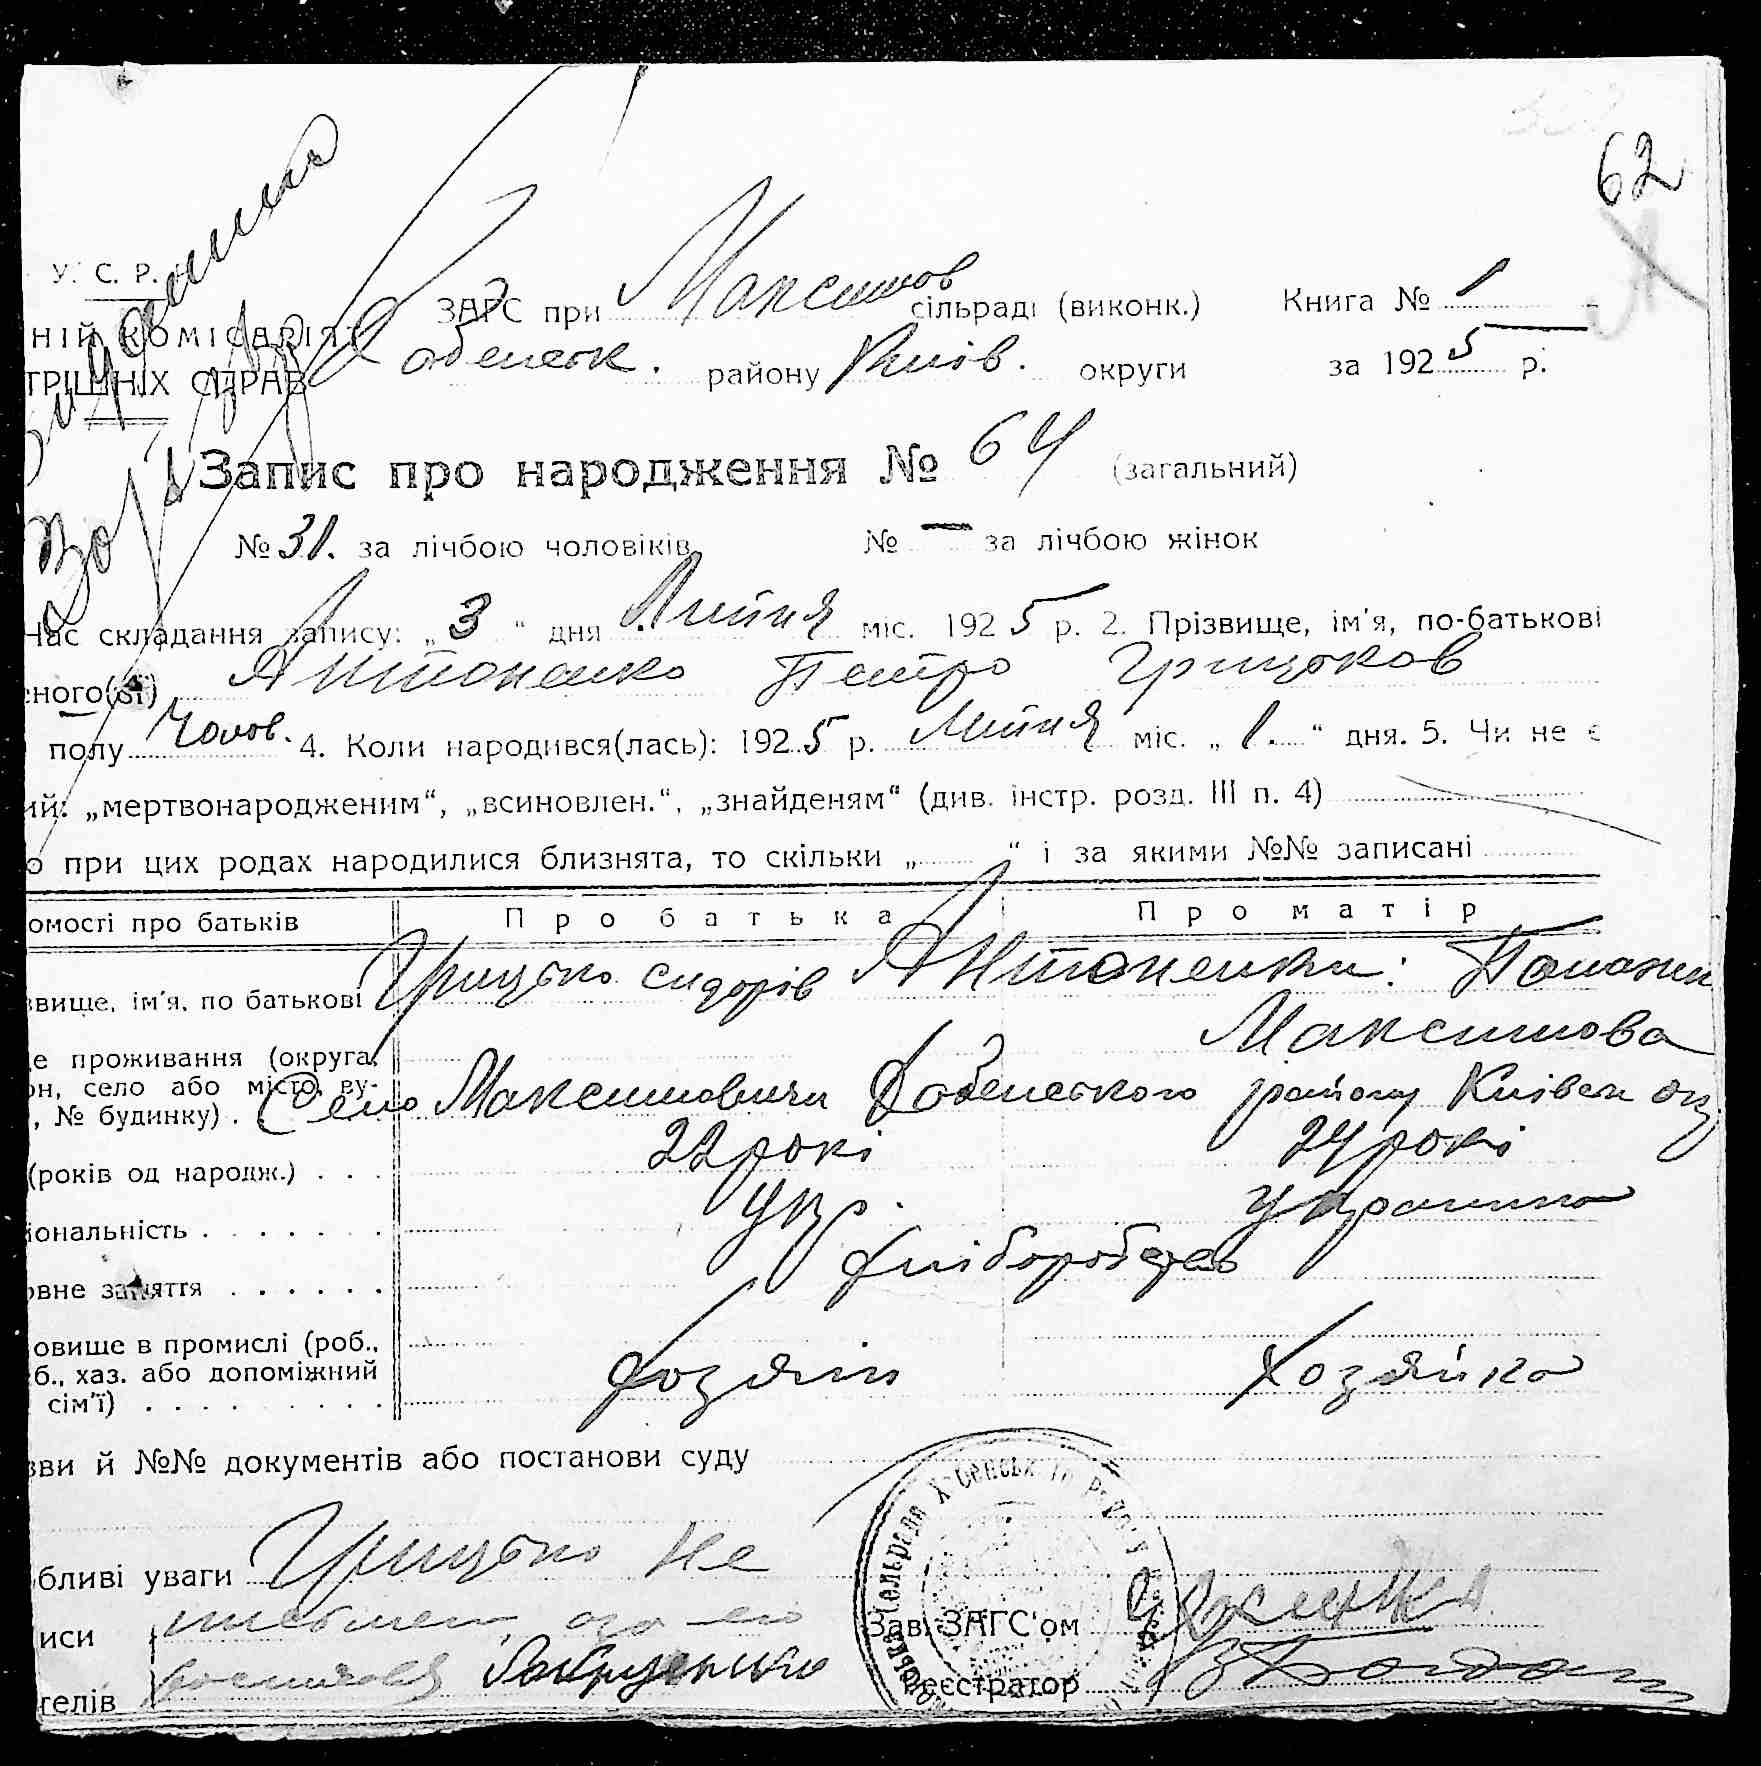 62
У. С. Р.
ЗАГС при Максимов сільраді (виконк.) Книга № 1
НІЙ КОМІСАРІЯТ
Хабенськ. району Київ. округи за 1925 р.
ТРІШНІХ СПРАВ
Запис про народження № 64 (загальний)
№ 31. за лічбою чоловіків № — за лічбою жінок
Час складання запису: „ 3 " дня Липня міс. 1925 р. 2. Прізвище, ім'я, по-батькові
ного(ої) Антоненко Петро Грицьков
полу Чолов. 4. Коли народився(лась): 1925 р. Липня міс. „ 1. " дня. 5. Чи не є
ий: „мертвонародженим", „всиновлен.", „знайденям" (див. інстр. розд. III п. 4)
о при цих родах народилися близнята, то скільки „ " і за якими №№ записані
омості про батьків Про батька Про матір
звище, ім'я, по батькові Грицько Сидорів Антоненки:
Максимова
е проживання (округа,
он, село або місто, ву-
, № будинку) . Село Максимовичи Хабенського району Київськ окр
(років од народж.) . . . 22 рокі 24 рокі
іональність . . . . . . . Укр. Украинка
овне заняття . . . . . . Хліборобство
овище в промислі (роб.,
б., хаз. або допоміжний
сім'ї) . . . . . . . . . Хозяін Хозяйка
зви й №№ документів або постанови суду
бливі уваги Грицько не
иси письмен
Зав. ЗАГС'ом
телів
Реєстратор